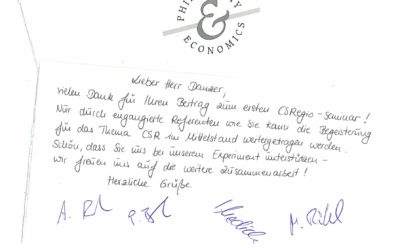 PHILOSOPHY
&
ECONOMICS
Lieber Herr Danzer,
vielen Dank für Ihren Beitrag zum ersten CSRegio-Seminar!
Nur durch engangierte Referenten wie Sie kann die Begeisterung
für das Thema CSR im Mittelstand weitergetragen werden.
Schön, dass Sie uns bei unserem Experiment unterstützen -
wir freuen uns auf die weitere Zusammenarbeit!
Herzliche Grüße